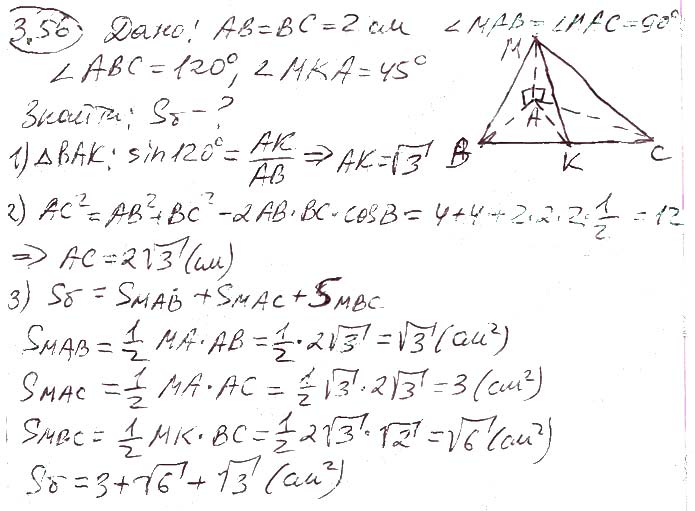 3.56 Дано: AB=BC=2 см ∠MAB=∠MAC=90°
∠ABC=120°, ∠MKA=45°
Знайти: Sб-?
1) △BAK: sin120°=AK/AB ⇒ AK=√3
2) AC²=AB²+BC²-2AB·BC·cosB=4+4+2·2·2·1/2=12
⇒ AC=2√3 (см)
3) Sб=SMAB+SMAC+SMBC
SMAB=1/2 MA·AB=1/2·2√3=√3 (см²)
SMAC=1/2 MA·AC=1/2√3·2√3=3 (см²)
SMBC=1/2 MK·BC=1/2 2√3·√2=√6 (см²)
Sб=3+√6+√3 (см²)
M
A
B
K
C